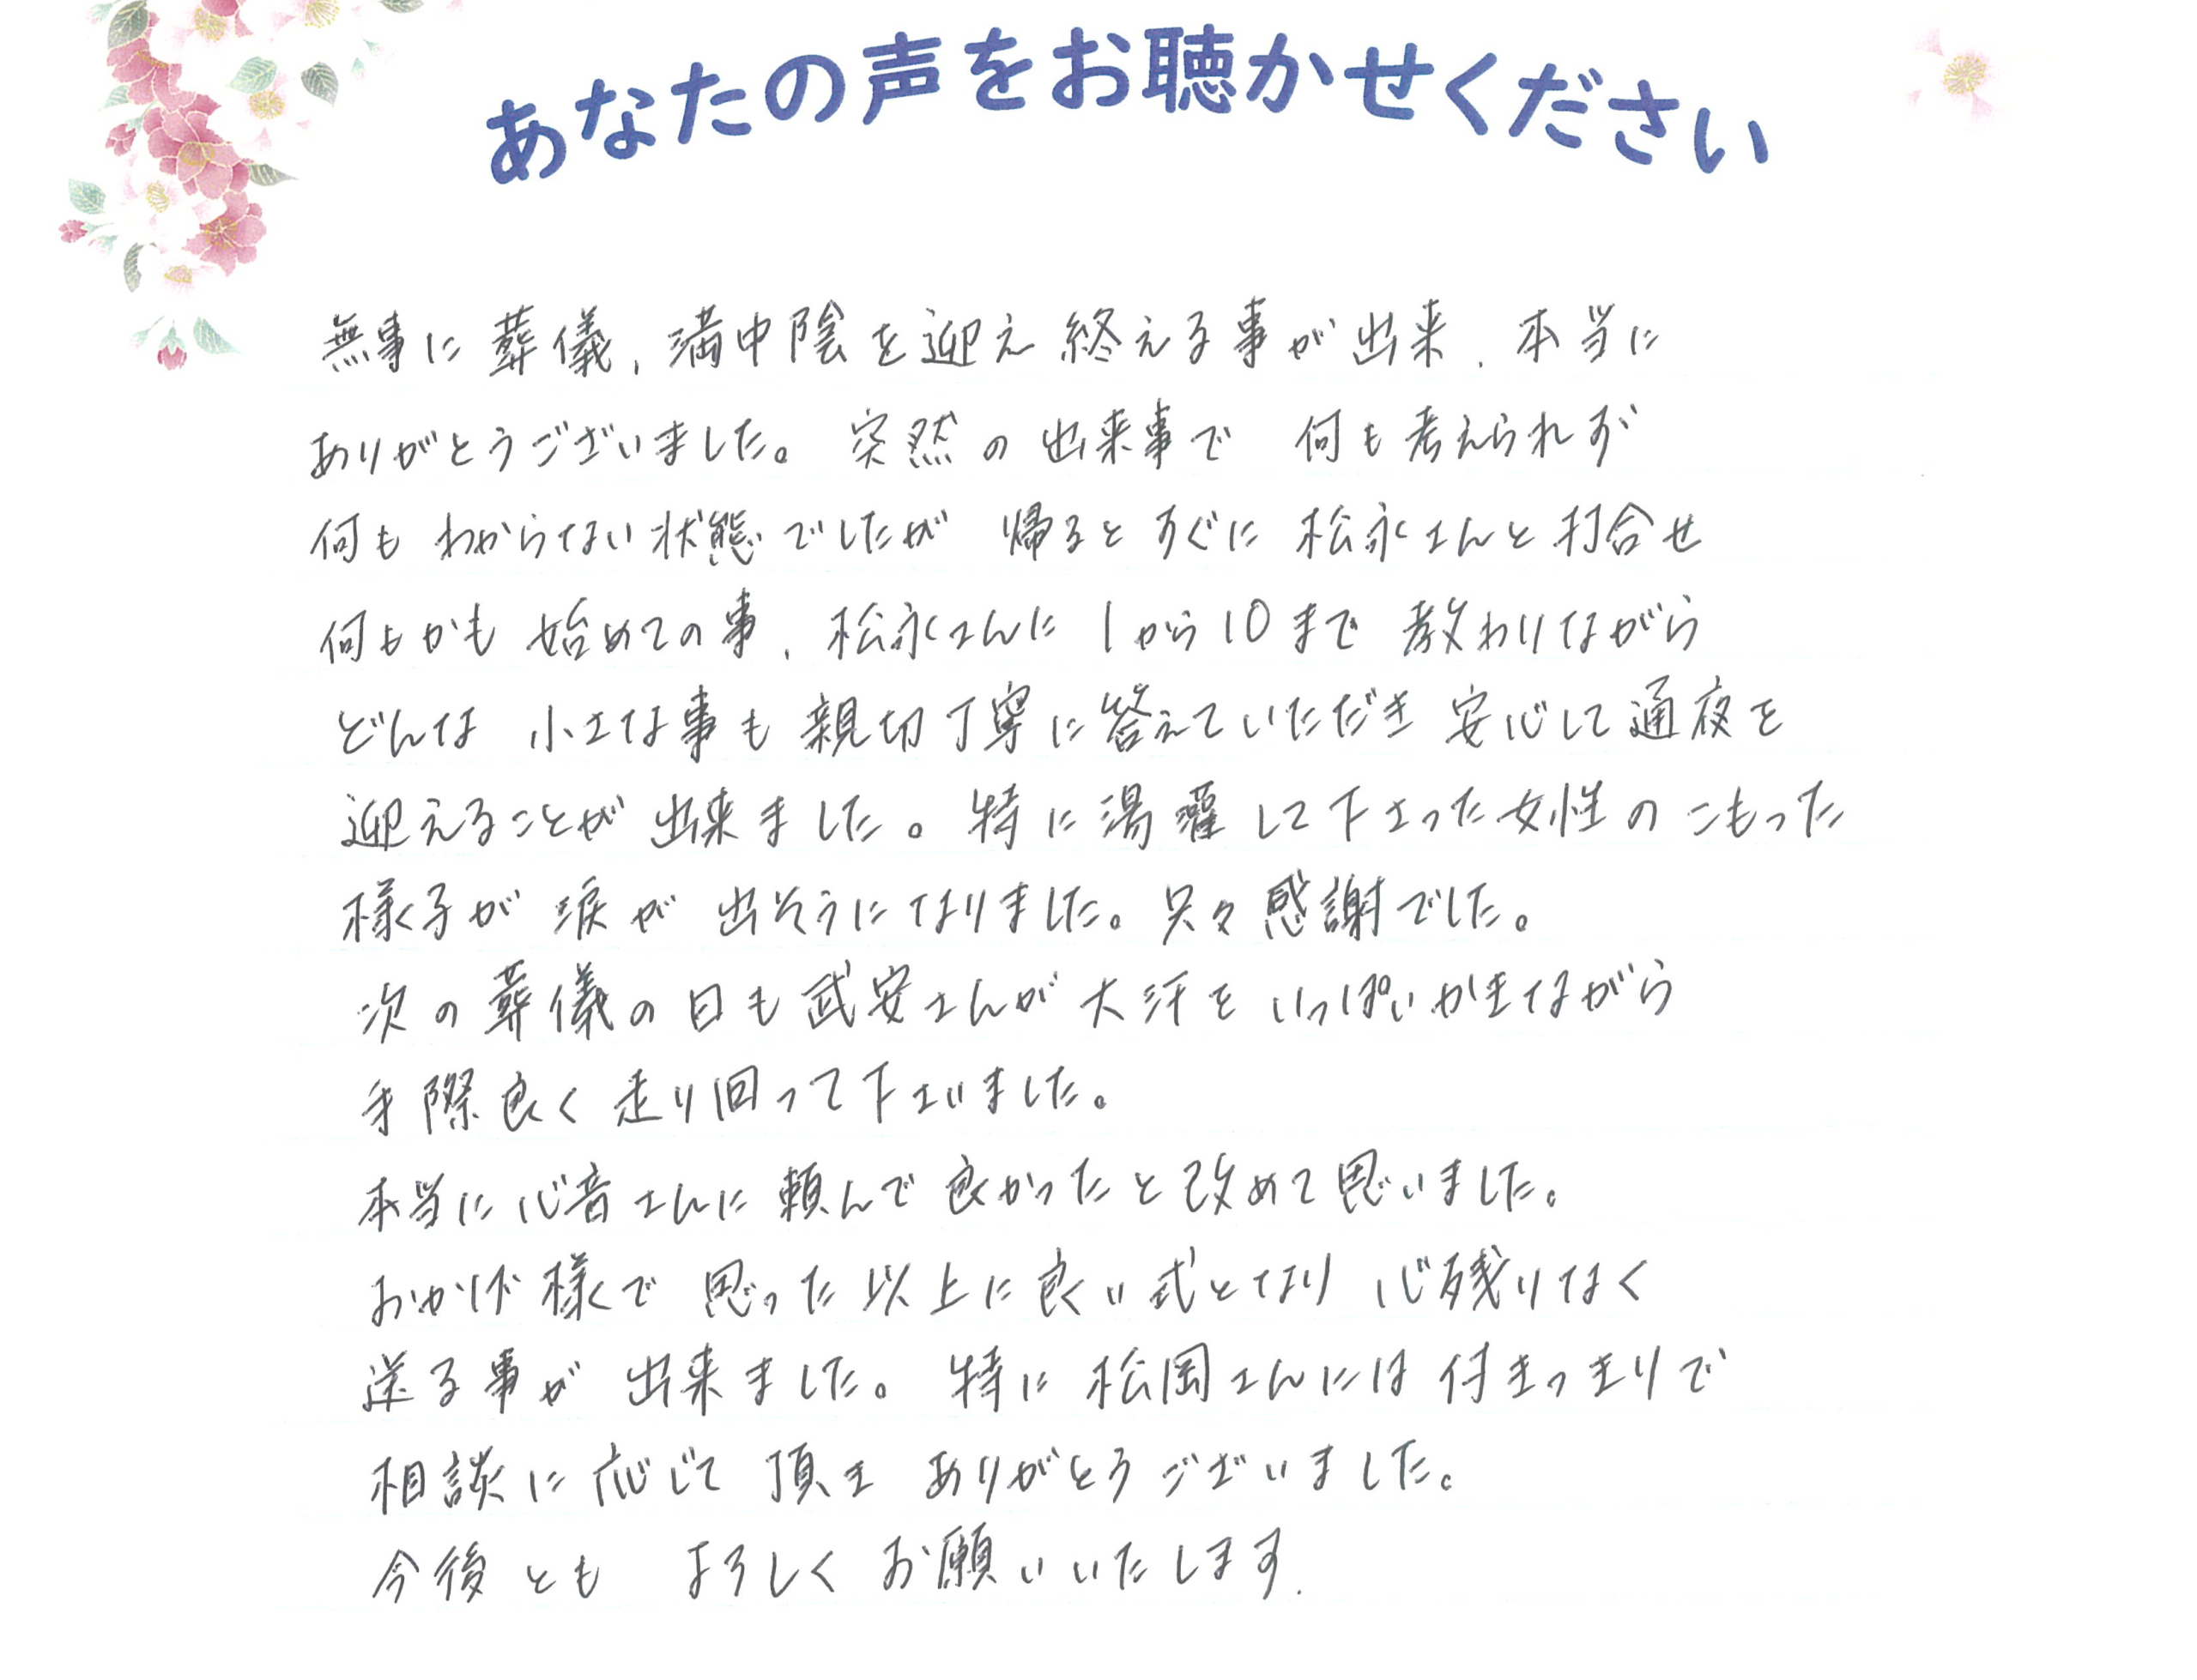 あなたの声をお聴かせください
無事に葬儀、満中陰を迎え終える事が出来、本当に
ありがとうございました。突然の出来事で 何も考えられず
何もわからない状態でしたが 帰るとすぐに松永さんと打合せ
何もかも始めての事、松永さんに1から10まで教わりながら
どんな小さな事も親切丁寧に答えていただき安心して通夜を
迎えることが出来ました。特に湯灌して下さった女性のこもった
様子が涙が出そうになりました。只々感謝でした。
次の葬儀の日も武安さんが大汗をいっぱいかきながら
手際良く走り回って下さいました。
本当に心音さんに頼んで良かったと改めて思いました。
おかげ様で思った以上に良い式となり心残りなく
送る事が出来ました。特に松岡さんには付きっきりで
相談に応じて頂き ありがとうございました。
今後とも よろしくお願いいたします.